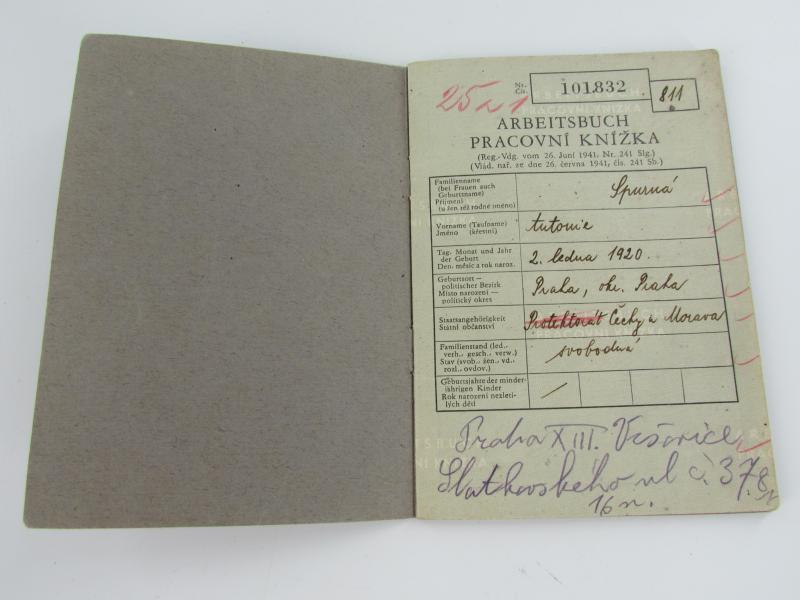 25
Nr.
Čís.
101832
811
ARBEITSBUCH
PRACOVNÍ KNÍŽKA
(Reg.-Vdg. vom 26. Juni 1941, Nr. 241 Slg.)
(Vlád. nař. ze dne 26. června 1941, čís. 241 Sb.)
Familienname
(bei Frauen auch
Geburtsname)
Příjmení
(u žen též rodné jméno)
Spurná
Vorname (Taufname)
Jméno (křestní)
Antonie
Tag, Monat und Jahr
der Geburt
Den, měsíc a rok naroz.
2. ledna 1920.
Geburtsort —
politischer Bezirk
Místo narození —
politický okres
Praha, okr. Praha
Staatsangehörigkeit
Státní občanství
Protektorát Čechy a Morava
Familienstand (led.,
verh., gesch., verw.)
Stav (svob., žen., vd.,
rozl., ovdov.)
svobodná
Geburtsjahre der minder-
jährigen Kinder
Rok narození nezleti-
lých dětí
Praha XIII. Vršovice,
ul č. 378